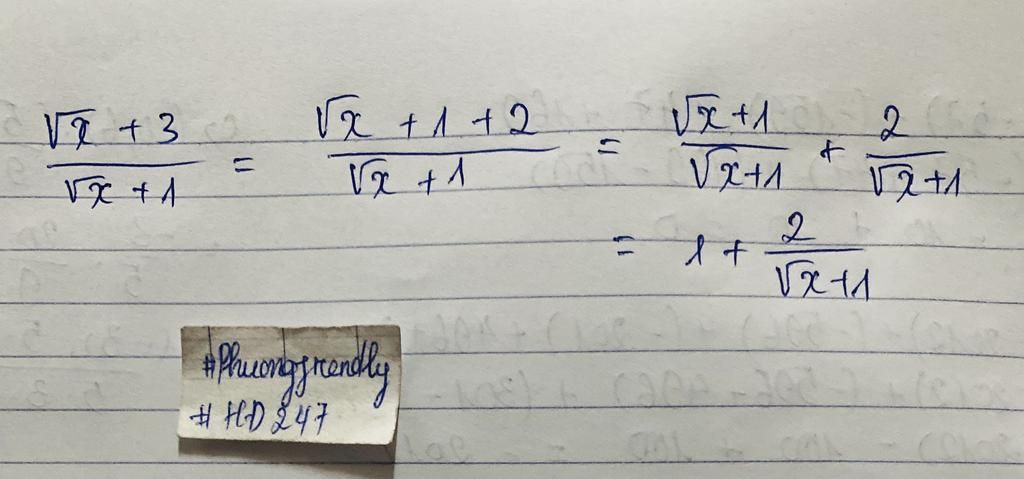 (√x + 3)/(√x + 1) = (√x + 1 + 2)/(√x + 1) = (√x+1)/(√x+1) + 2/(√x+1)
= 1 + 2/(√x+1)
#Phuongfrendly
# HD 247